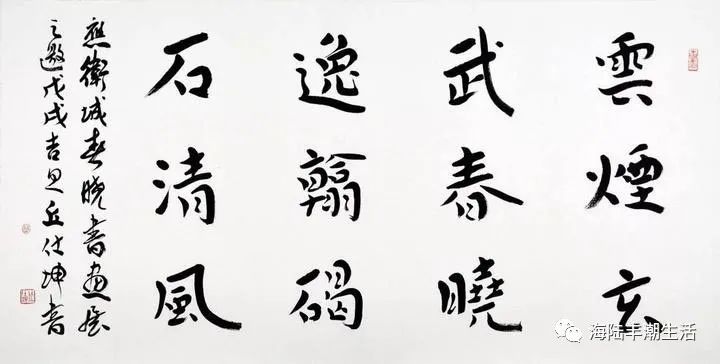 雲煙玄
武春曉
逸翰碣
石清風
應衛城春曉書畫展
之邀戊戌吉旦丘仕坤書
海陆丰潮生活